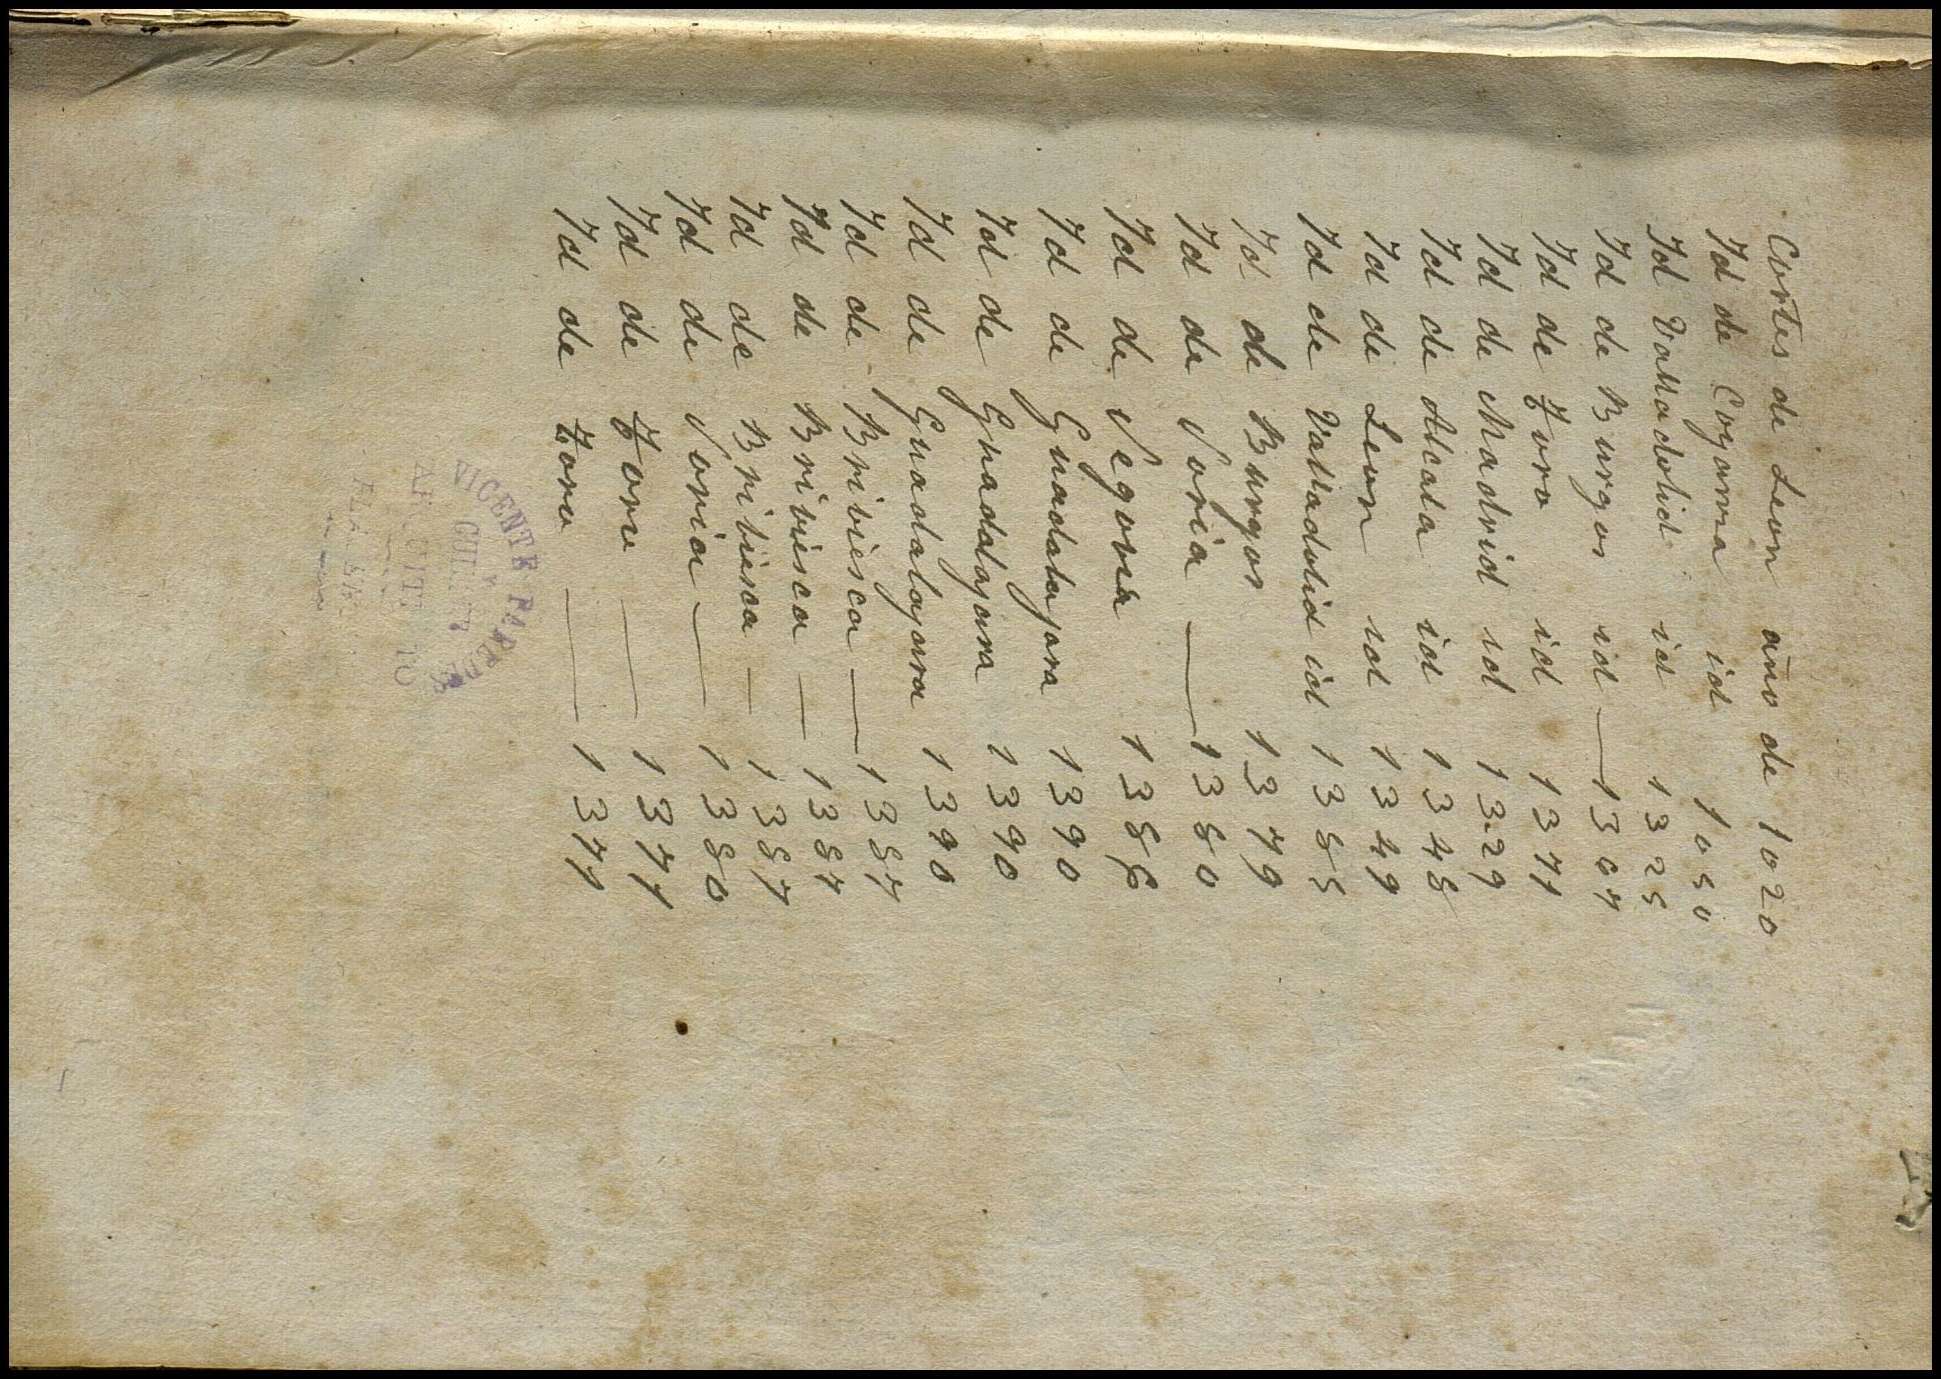 Cortes de Leon año de 1020
Id de Coyanza id 1050
Id Valladolid id 1325
Id de Burgos id — 1307
Id de Toro id 1371
Id de Madrid id 1329
Id de Alcala id 1348
Id de Leon id 1349
Id de Valladolid id 1385
Id de Burgos 1379
Id de Soria — 1380
Id de Segovia 1386
Id de Guadalajara 1390
Id de Guadalajara 1390
Id de Guadalajara 1390
Id de Bribiesca — 1387
Id de Bribiesca — 1387
Id de Bribiesca — 1387
Id de Soria — 1380
Id de Toro — 1371
Id de Toro — 1371
VICENTE PAREDES